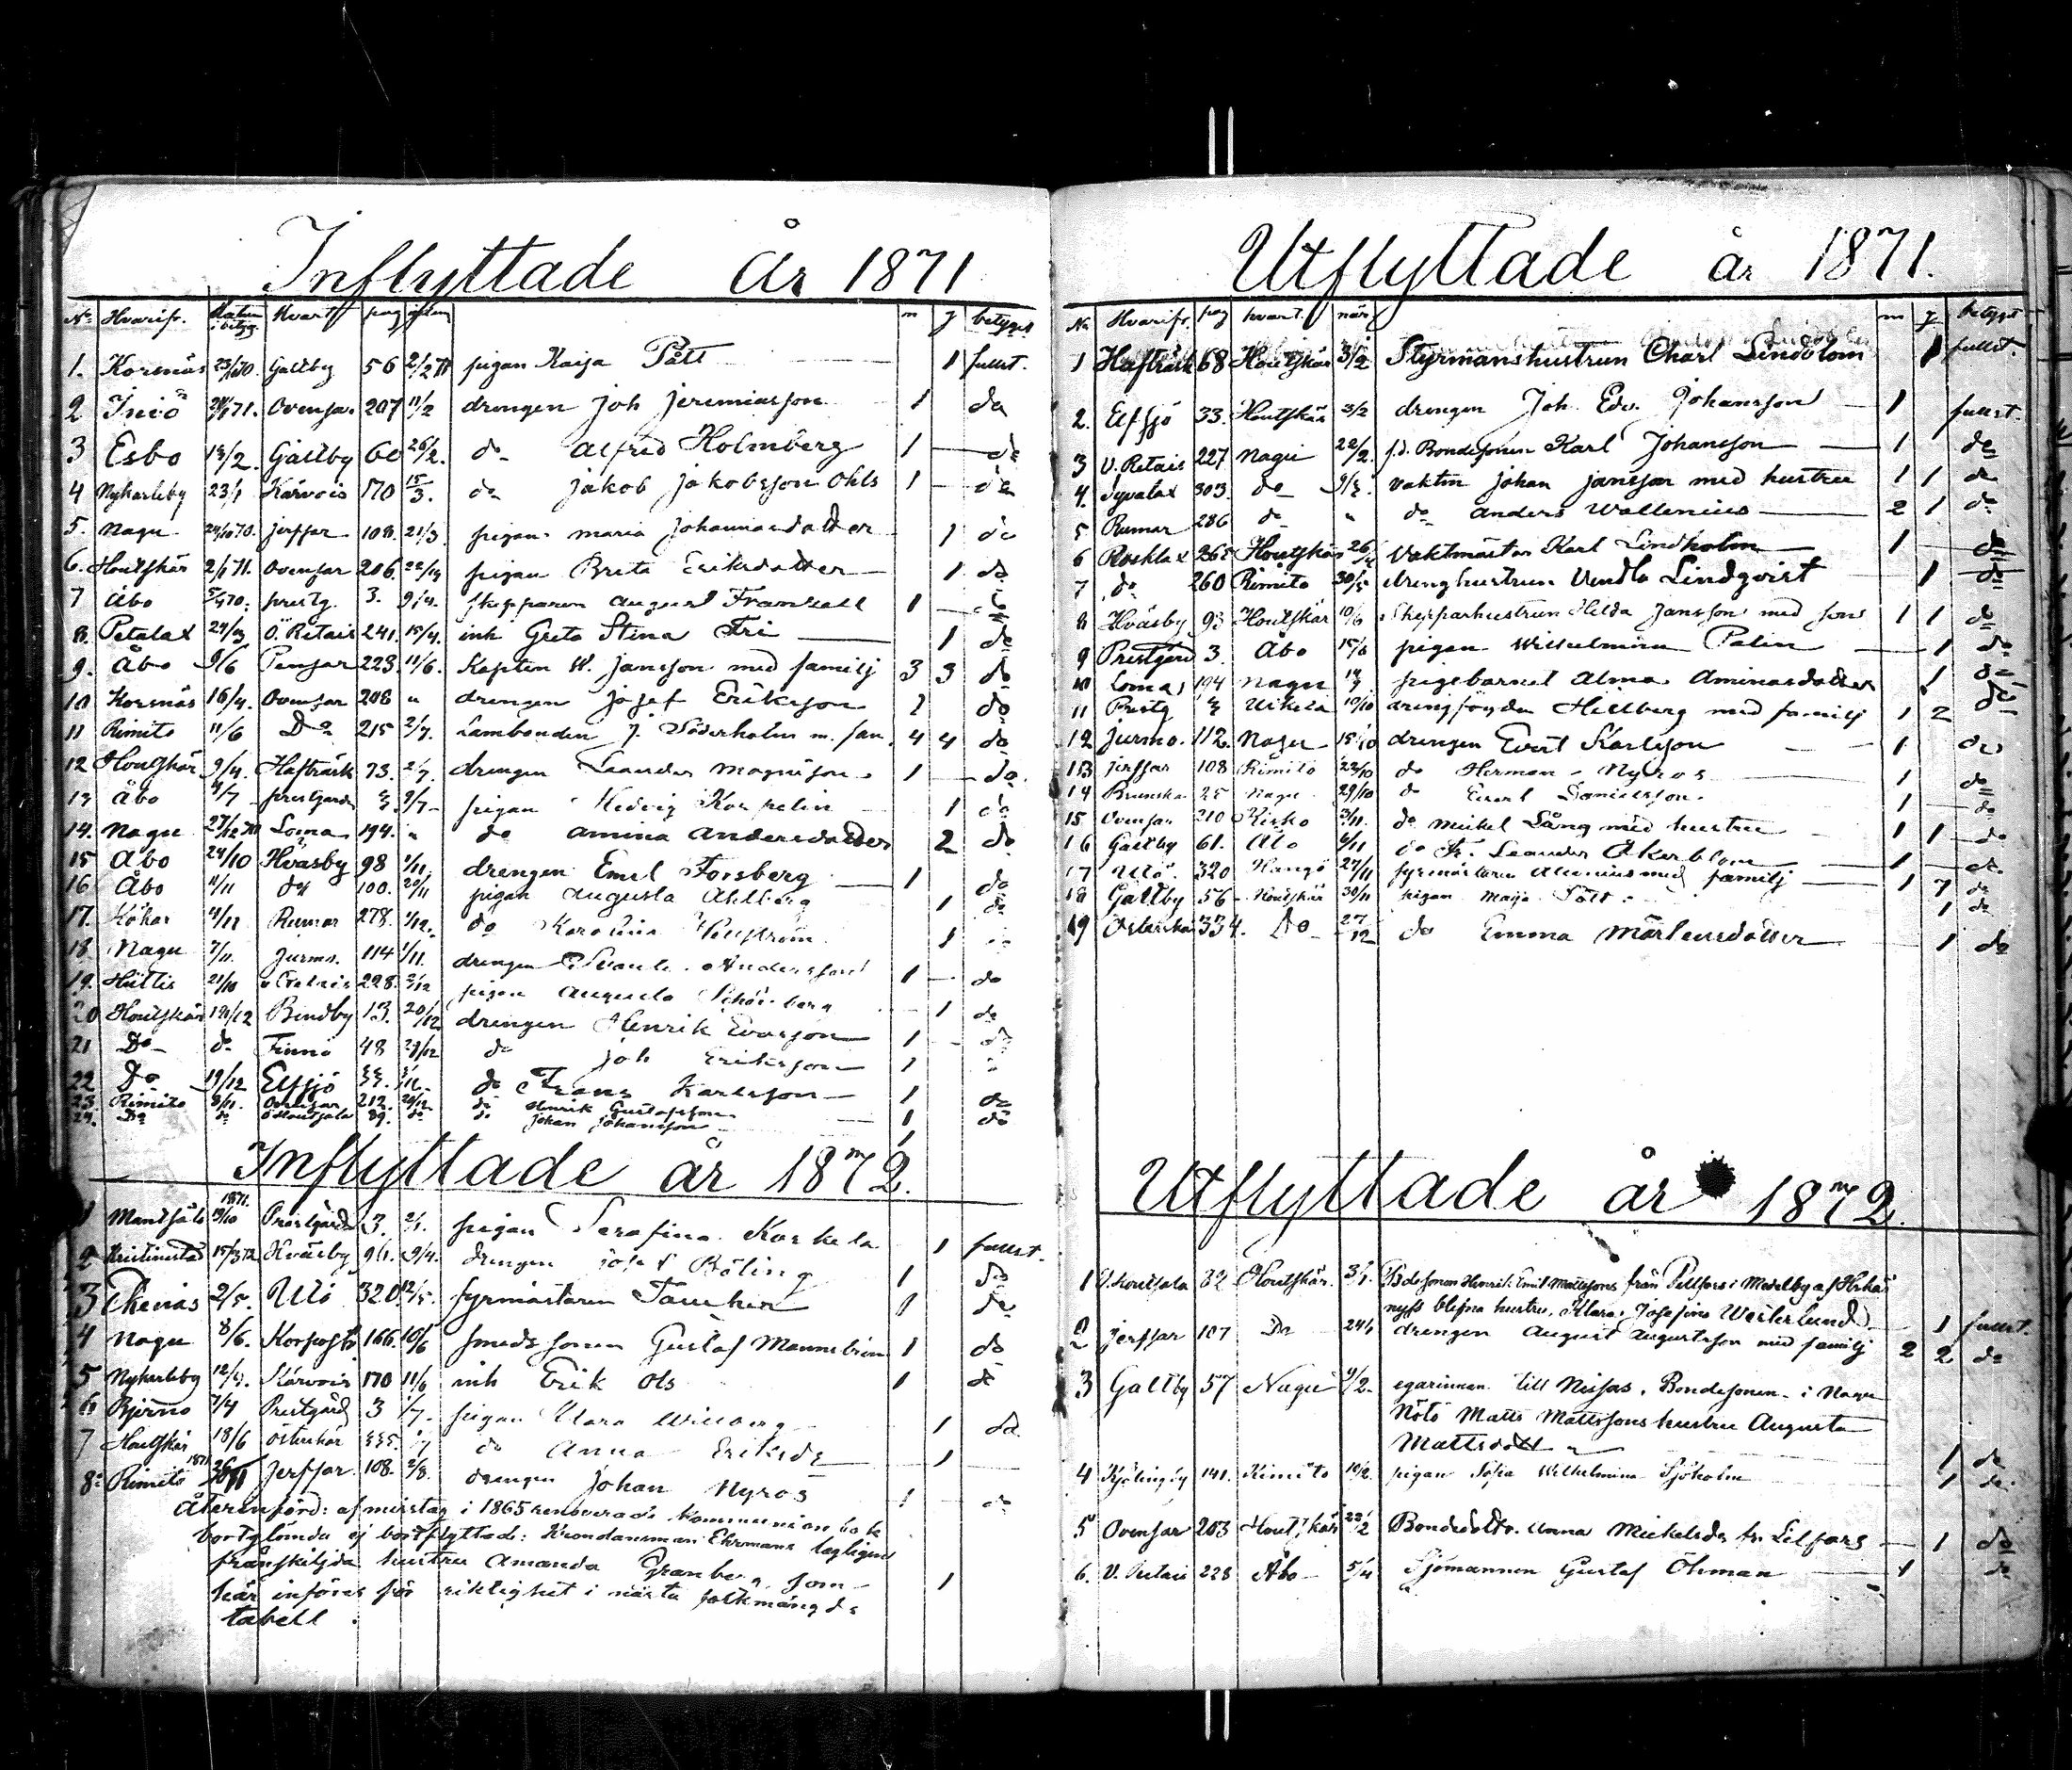 Inflyttade År 1871
No Hvarifr. Datum i betyg. Hvart pag m q betyget
1. Korsnäs 23/1 70. Galtby 56 2/2 71 pigan Kaisa Pått 1 fullst.
2 Iniö 71. Ovensar 207 11/2 drengen Joh Jeremiasson 1 do
3 Esbo 13/2. Galtby 60 26/2. do Alfred Holmberg 1 do
4 Nykarleby 23/1 Kärvois 170 15/3. do Jakob Jakobsson Ohls 1 do
5. Nagu 24/10 70. Jerfsar 108. 21/3. pigan Maria Johannesdotter 1 do
6. Houtskär 2/1 71. Ovensar 206. pigan Brita Eriksdotter 1 do
7 Åbo prestg. 3. 9/4. skepparen August Framvall 1 do
8. Petalax Ö. Retais 241. 15/4. inh Greta Stina Fri 1 do
9. Åbo 9/6 Pensar 223. 11/6. Kapten W. Jansson med familj 3 3 do
10 Korsnäs 16/4. Ovensar 208 " drengen Josef Eriksson 1 do
11 Rimito 11/6 Do 215 2/7. Lambonden J. Söderholm m. fam. 4 4 do
12 Houtskär 9/4. Hafträsk 73. 2/7. drengen Leander Magnusson 1 do.
13 Åbo 4/7 prestgård 3. 9/7 pigan Hedvig Korpelin 1 do
14. Nagu 27/12 70 Loma 194. " do Amina Andersdotter 2 do
15 Åbo 24/10 Hväsby 98 1/11. drengen Emil Forsberg 1 do
16 Åbo 11/11 do 100. 20/11 pigan Augusta Ahlberg 1 do
17. Kökar 4/11 Rumar 278. 1/12. do Karolina 1
18 Nagu 7/11. Jurmo. 114 1/11. drengen Svante Andersson 1 do
19. Hittis 21/10 Retais 228. 2/12 pigan Augusta 1 do
20 Houtskär 19/12 Bendby 13. 20/12 drengen Henrik Evarsson 1 do
21 Do do Finnö 48 29/12 do Joh Eriksson 1 "
22 Do 19/12 Elfsjö 33. do Frans Karlsson 1 do
23. Rimito Ovensar 212. do Henrik Gustafsson 1 do
24. Do do 39. do do Johan Johansson
Inflyttade år 1872.
1 1871. 19/10 Prestgård 3. 2/1. pigan Serafina Korkela 1 fullst.
2 Kristinestad 15/3 72 Hväsby 91. 9/4. drengen Josef Böling 1 do
3 Ekenäs 2/5. Utö 320. 12/5. fyrmästaren Taucher 1 do
4 Nagu 8/6. Korpogård 166. 10/6 smedssonen Gustaf Mannström 1 do
5 Nykarleby 12/4. Kärvois 170 11/6 inh Erik Ols 1 do
6 Bjerno 7/4 Prestgård 3 1/7. pigan Klara 1 do
7 Houtskär 18/6 Österskär 335. do Anna Eriksdr 1
8: Rimito 1871 Jerfsar 108. 2/8. drengen Johan Nyros 1 do
Återinförd: af misstag i 1865 renoverade kommunion bok
bortglömda ej bortflyttade: Krondansman Ehrmans lagligen
frånskiljda hustru Amanda Granberg, som 1
här införes för riktighet i nästa folkmängds
tabell.
Utflyttade år 1871.
No Hvarifr. pag hvart. när m q betyget
1 Hafträsk 68 Houtskär 3/2 Styrmanshustrun Charl Lindblom 1 fullst.
2. Elfsjö 33. Houtskär 3/2 drengen Joh. Edv. Johansson 1 fullst.
3 V. Retais 227 Nagu 22/2. f.d. Bondesonen Karl Johansson 1 do
4. Dyvalax 303. do vakten Johan Jansson med hustru 1 1 do
5 Rumar 286 do " do Anders Wallenius 2 1 do
6 Rosklax 265 Houtskär Vaktmästar Karl Lindholm 1 do
7 do 260 Rimito 30/5 drenghustrun Vendla Lindqvist 1 do
8 Hväsby 93 Houtskär 10/6 Skepparhustrun Hilda Jansson med son 1 1 do
9 Prestgård 3. Åbo 15/6 pigan Wilhelmina Palin 1 do
10 Loma 194 Nagu pigebarnet Alma Aminasdotter 1 do
11 Prestg 10/10 drengfogden Hillberg med familj 1 2 do
12 Jurmo. 112. Nagu 15/10 drengen Evert Karlsson 1 do
13 Jerfsar 108 Rimito 22/10 do Herman Nyros 1 do
14 Brunska 25 Nagu 29/10 do Evert Danielsson 1 do
15 Ovensar 210 Kisko do Mickel Lång med hustru 1 1 do
16 Galtby 61. Åbo 4/11 do Fr. Leander Åkerblom 1 do
17 Utö 320 Hangö 27/11 fyrmästaren med familj 1 7 do
18 Galtby 56 Houtskär 30/11 pigan Maija Pått 1 do
19 Österskär 334. Do 27/12 do Emma Mårtensdotter 1 do
Utflyttade år 1872.
1 32 Houtskär. 3/1. Bdesonen Henrik Emil Mattssons från Pellfors i Medelby af Hskär
nyss blifna hustru, Klara Josefina Westerlund 1 fullst.
2 Jerfsar 107 Do 24/1 drengen August Augustsson med familj 2 2 do
3 Galtby 57 Nagu egarinnan till Nissas, Bondesonen i Nagu
Nötö Matts Mattssons hustru Augusta
Mattsdotter 1 do
4 Kjölingby 141. Kimito 10/2. pigan Sofia Wilhelmina Sjöholm 1 do.
5 Ovensar 203 Houtskär 22/2 Bondedottr. Anna Mickelsdr fr. Lilfors 1 do
6. V. Retais 228 Åbo 5/4 Sjömannen Gustaf Öhman 1 do